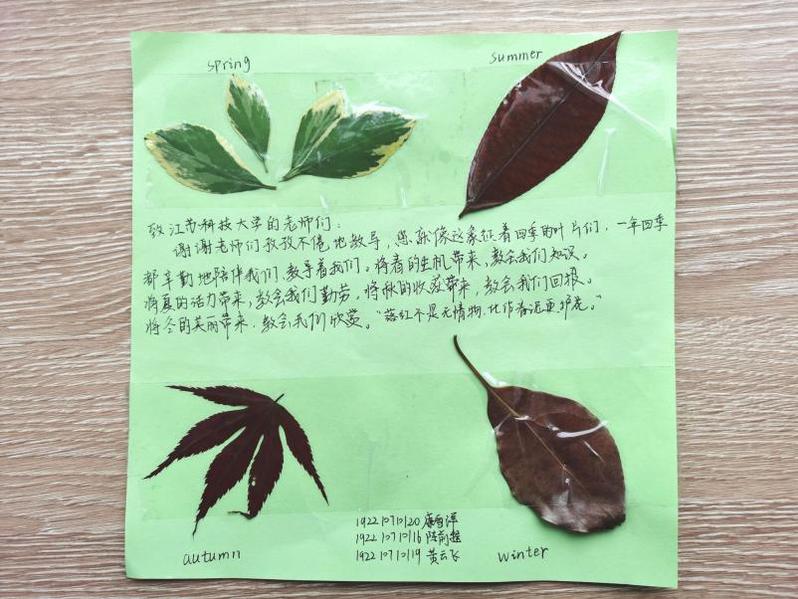 spring
summer
致江苏科技大学的老师们:
谢谢老师们孜孜不倦地教导,您就像这象征着四季的叶片们,一年四季
都辛勤地陪伴我们,教导着我们。将春的生机带来,教会我们知识。
将夏的活力带来,教会我们勤劳,将秋的收获带来,教会我们回报。
将冬的美丽带来,教会我们欣赏。“落红不是无情物,化作春泥更护花。”
192210710120
192210710116
192210710119 黄云飞
autumn
winter